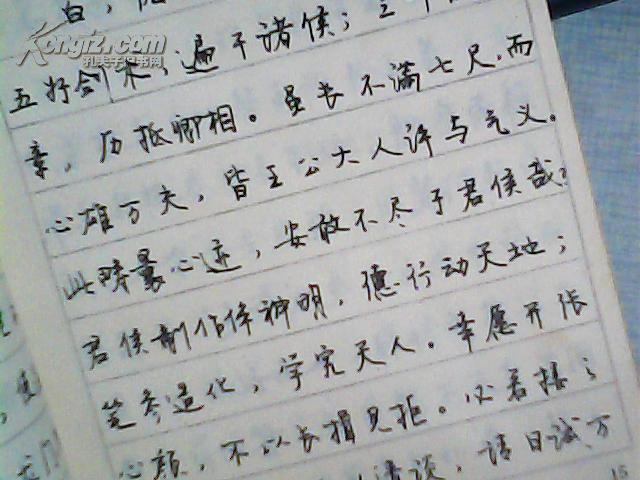 白，陇
五好剑术，遍干诸侯；三十
章，历抵卿相。虽长不满七尺，而
心雄万夫，皆王公大人许与气义。
此畴曩心迹，安敢不尽于君侯哉？
君侯制作侔神明，德行动天地；
笔参造化，学究天人。幸愿开张
心颜，不以长揖见拒。必若接之
清谈，请日试万
15
Kongfz.com
孔夫子旧书网